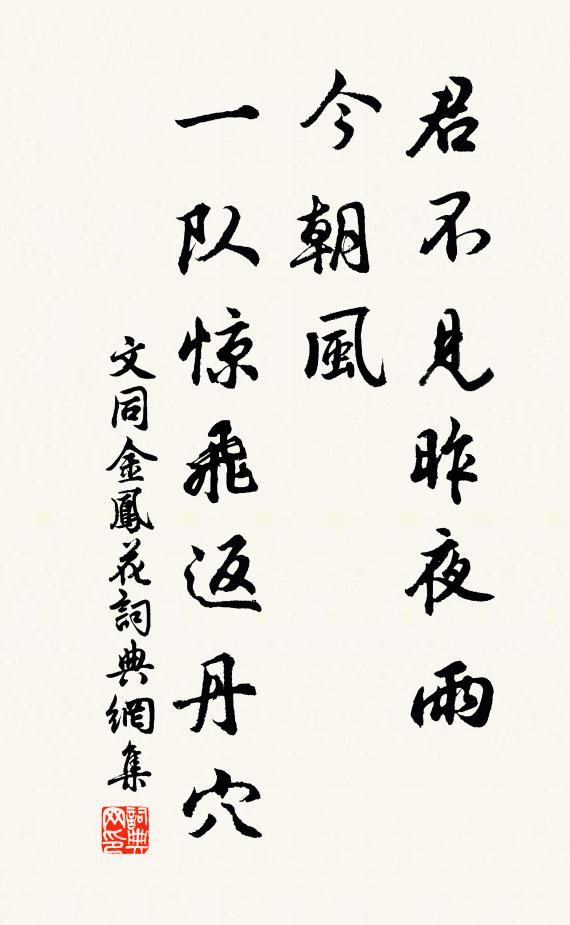 君不见昨夜雨
今朝風
一队惊飛返丹穴
文同金鳳花詞典網集
詞典
网印